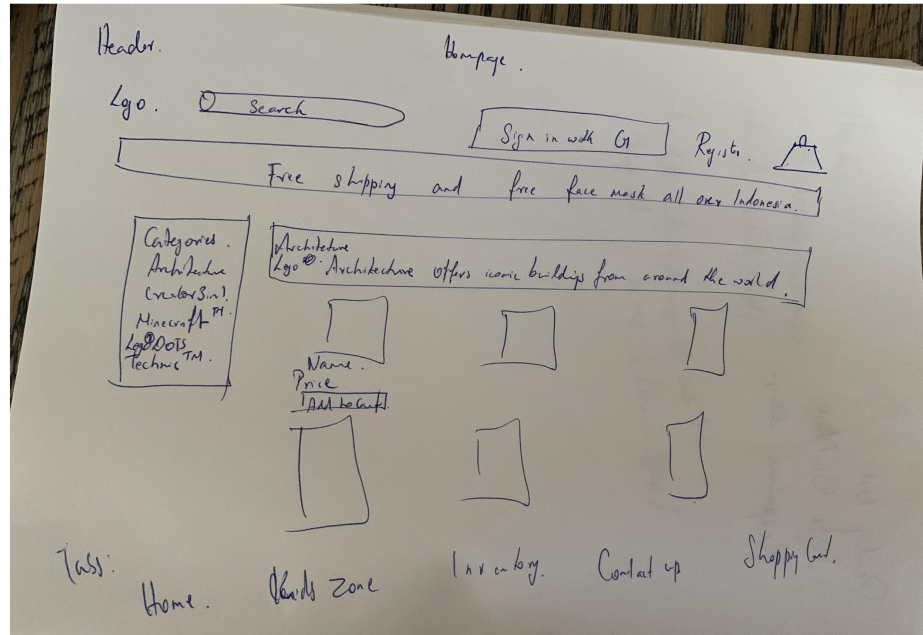 Header.
Homepage.
Logo.
Search
Sign in with G
Register.
Free shipping and free face mask all over Indonesia.
Categories.
Architecture
Creator 3in1.
Minecraft™.
Lego® DOTS
Technic™.
Architecture
Lego®. Architecture offers iconic buildings from around the world.
Name.
Price
Add to Cart.
Tabs:
Home.
Kids Zone
Inventory.
Contact us
Shopping Cart.